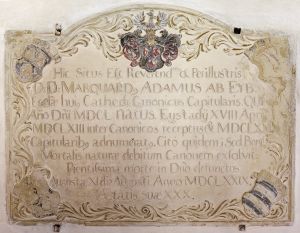 Hic Situs Est Reverend9 & Perillustris
D.D. MARQUARD9 ADAMUS AB EYB.
Ecclæ huj9 Cathedr. Canonicus Capitularis QUI
Año Dñi MDCL NATUS Eystadij XVIII April
MDCLXIII inter Canonicos receptus MDCLXX
Capitularib9 adnumerat9. Cito quidem sed Bene
Mortalis naturæ debitum Canonem exolvit,
Pientissima morte in Dño defunctus
Augusti Anno MDCLXXIX.
Ætatis suæ XXX.